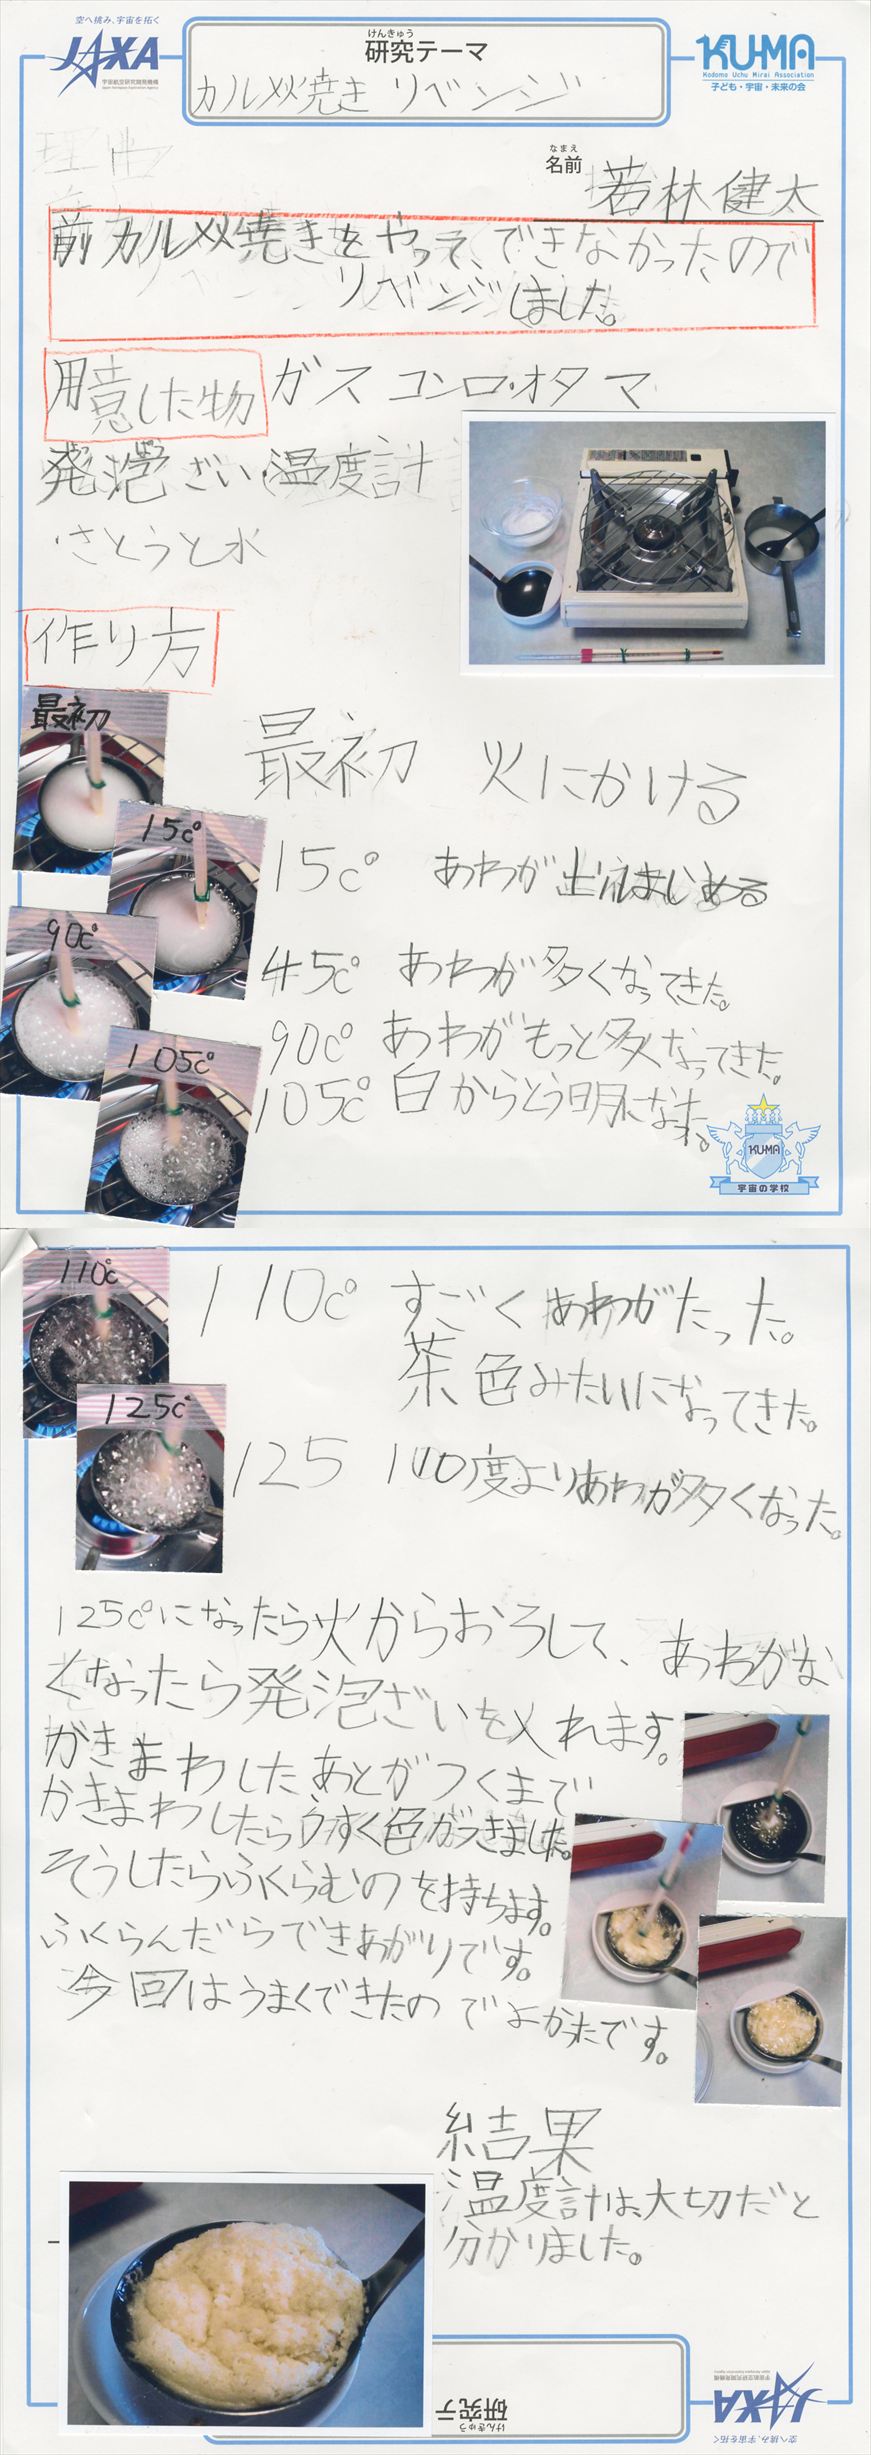 空へ挑み、宇宙を拓く
JAXA
宇宙航空研究開発機構
Japan Aerospace Exploration Agency
けんきゅう
研究テーマ
カルメ焼き リベンジ
KU-MA
Kodomo Uchu Mirai Association
子ども・宇宙・未来の会
理由
なまえ
名前
若林健太
前カルメ焼きをやって、できなかったので
リベンジしました。
用意した物 ガスコンロ・オタマ
発泡ざい・温度計
・さとうと水
作り方
最初
最初 火にかける
15c°
15c° あわが出はじめる
45c° あわが多くなってきた。
90c°
90c° あわがもっと多くなってきた。
105c°
105c° 白からとう明になった。
KU-MA
宇宙の学校
110c°
110c° すごくあわがたった。
茶色みたいになってきた。
125c°
125 110度よりあわが多くなった。
125c°になったら火からおろして、あわがな
くなったら発泡ざいを入れます。
かきまわしたあとがつくまで
かきまわしたらうすく色がつきました。
そうしたらふくらむのを持ちます。
ふくらんだらできあがりです。
今回はうまくできたのでよかったです。
結果
温度計は、大切だと
分かりました。
けんきゅう
研究テ
JAXA
宇宙航空研究開発機構
空へ挑み、宇宙を拓く